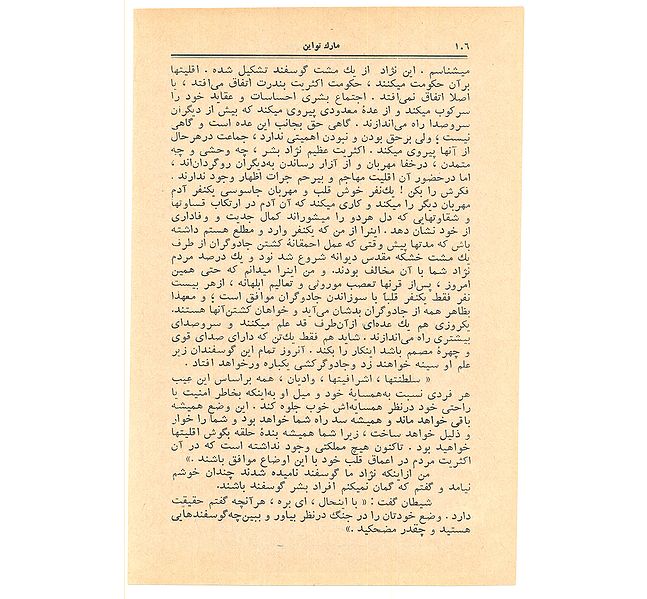 ۱۰۶
مارك تواين
میشناسم . این نژاد از یك مشت گوسفند تشکیل شده . اقلیتها
برآن حکومت میکنند ، حکومت اکثریت بندرت اتفاق می‌افتد ، یا
اصلا اتفاق نمی‌افتد . اجتماع بشری احساسات و عقاید خود را
سرکوب میکند و از عدهٔ معدودی پیروی میکند که بیش از دیگران
سروصدا راه می‌اندازند . گاهی حق بجانب این عده است و گاهی
نیست ، ولی برحق بودن و نبودن اهمیتی ندارد ، جماعت درهرحال
از آنها پیروی میکند . اکثریت عظیم نژاد بشر ، چه وحشی و چه
متمدن ، درخفا مهربان و از آزار رساندن به‌دیگران روگردان‌اند ،
اما درحضور آن اقلیت مهاجم و بیرحم جرات اظهار وجود ندارند .
فکرش را بکن ! یك‌نفر خوش قلب و مهربان جاسوسی یکنفر آدم
مهربان دیگر را میکند و کاری میکند که آن آدم در ارتکاب قساوتها
و شقاوتهایی که دل هردو را میشوراند کمال جدیت و وفاداری
از خود نشان دهد . اینرا از من که یکنفر وارد و مطلع هستم داشته
باش که مدتها پیش وقتی که عمل احمقانهٔ کشتن جادوگران از طرف
یك مشت خشکه مقدس دیوانه شروع شد نود و یك درصد مردم
نژاد شما با آن مخالف بودند. و من اینرا میدانم که حتی همین
امروز ، پس‌از قرنها تعصب موروثی و تعالیم ابلهانه ، ازهر بیست
نفر فقط یکنفر قلباً با سوزاندن جادوگران موافق است ؛ و معهذا
بظاهر همه از جادوگران بدشان می‌آید و خواهان کشتن‌آنها هستند.
یکروزی هم یك عده‌ای ازآن‌طرف قد علم میکنند و سروصدای
بیشتری راه می‌اندازند . شاید هم فقط یك‌تن که دارای صدای قوی
و چهرهٔ مصمم باشد اینکار را بکند . آنروز تمام این گوسفندان زیر
علم او سینه خواهند زد وجادوگرکشی یکباره ورخواهد افتاد .
« سلطنتها ، اشرافیتها ، وادیان ، همه براساس این عیب
هر فردی نسبت به‌همسایهٔ خود و میل او به‌اینکه بخاطر امنیت یا
راحتی خود درنظر همسایه‌اش خوب جلوه کند . این وضع همیشه
باقی خواهد ماند و همیشه سد راه شما خواهد بود و شما را خوار
و ذلیل خواهد ساخت ، زیرا شما همیشه بندهٔ حلقه بگوش اقلیتها
خواهید بود . تاکنون هیچ مملکتی وجود نداشته است که در آن
اکثریت مردم در اعماق قلب خود با این اوضاع موافق باشند .»
من ازاینکه نژاد ما گوسفند نامیده شدند چندان خوشم
نیامد و گفتم که گمان نمیکنم افراد بشر گوسفند باشند.
شیطان گفت : « با اینحال ، ای بره ، هرآنچه گفتم حقیقت
دارد . وضع خودتان را در جنگ درنظر بیاور و ببین‌چه‌گوسفندهایی
هستید و چقدر مضحکید .»